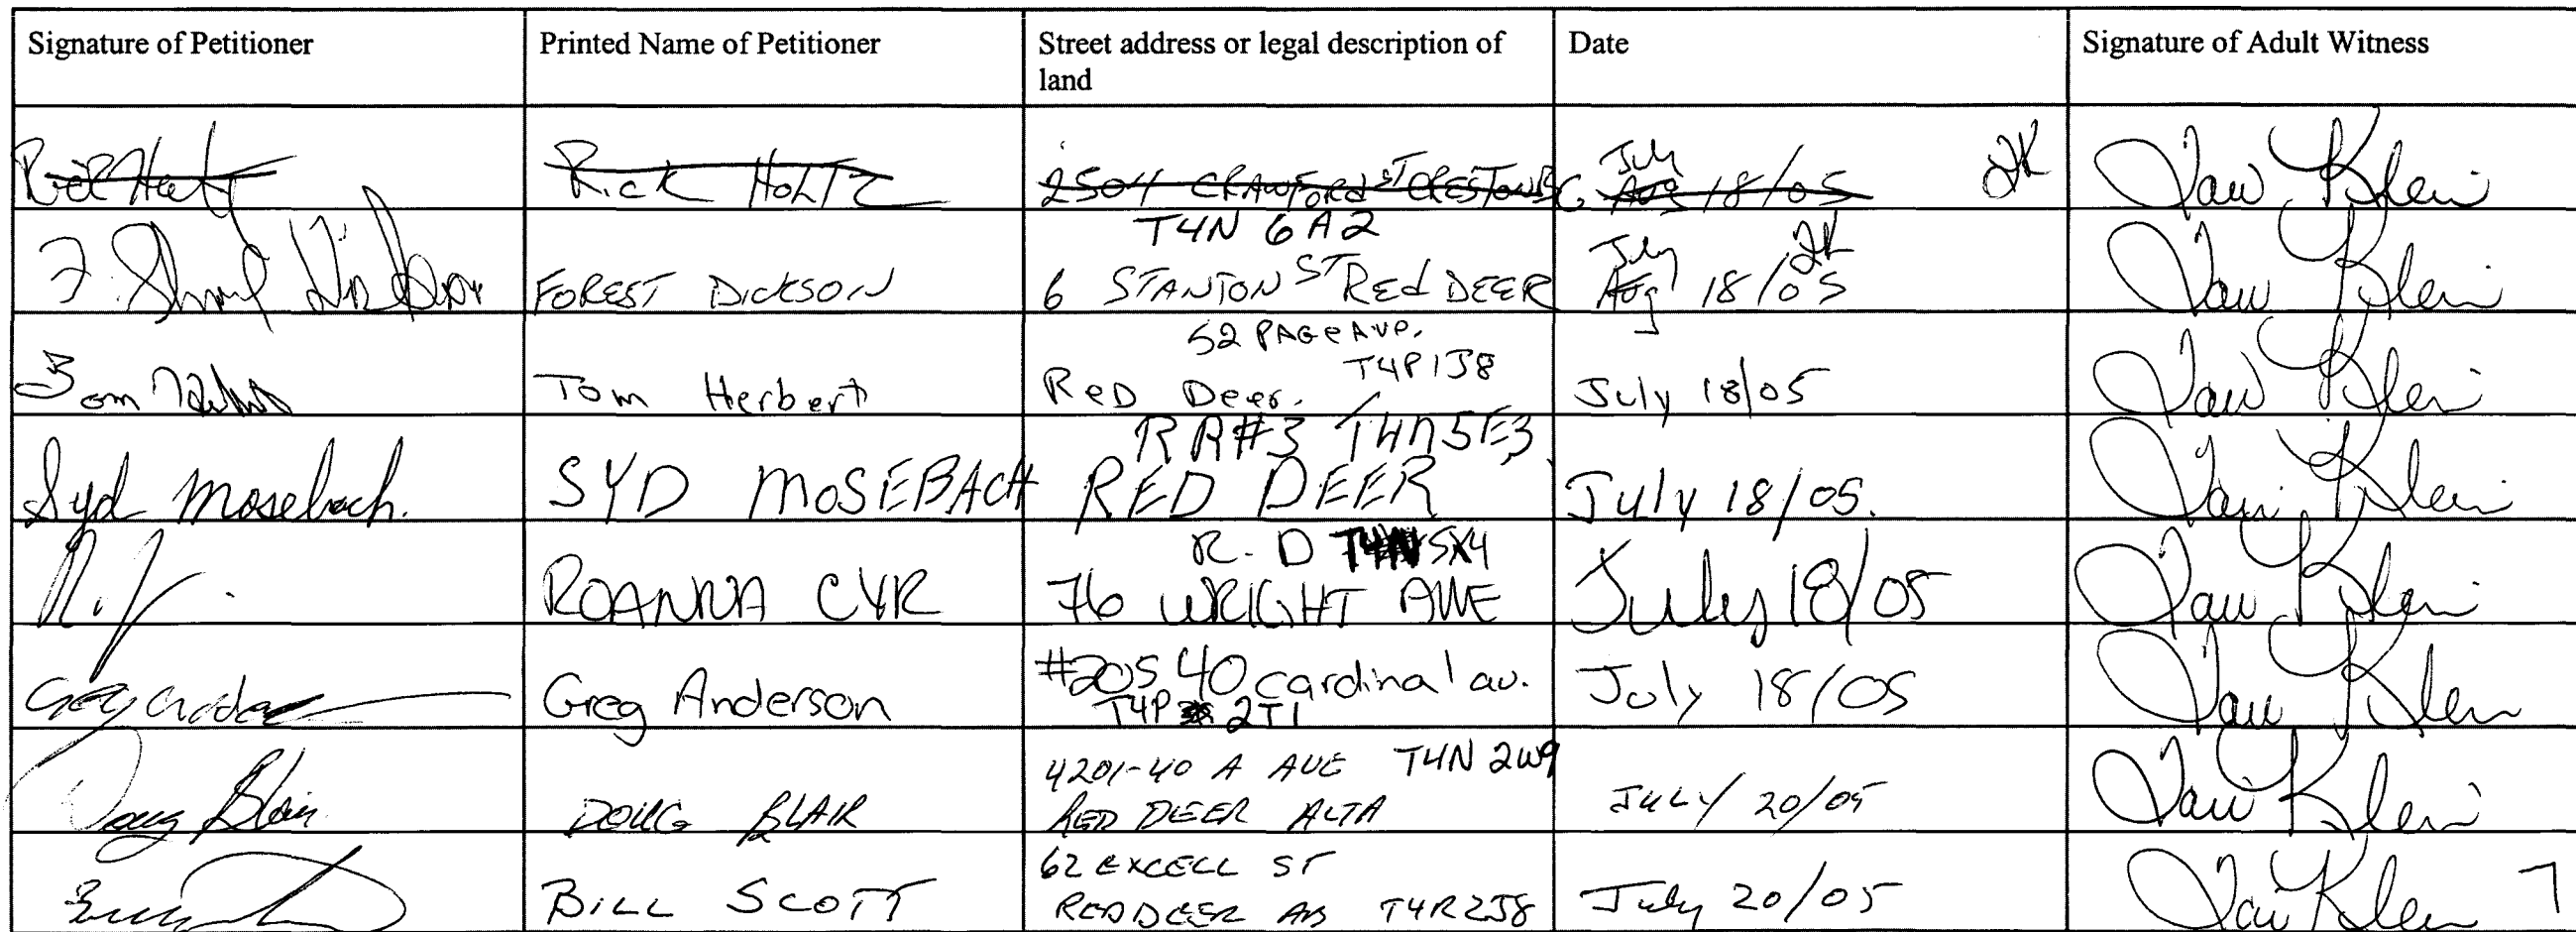 Signature of Petitioner
Printed Name of Petitioner
Street address or legal description of
land
Date
Signature of Adult Witness
Rick Holtz
2504 CRAWFORD ST CRESTON BC
July
Aug 18/05
Klein
T4N 6A2
FOREST DICKSON
6 STANTON ST Red DEER
July
Aug 18/05
Klein
52 PAGE AVE.
T4P 1J8
Tom Herbert
Tom Herbert
Red Deer.
July 18/05
Klein
RR#3 T4N5E3
Syd Mosebach.
SYD MOSEBACH
RED DEER
July 18/05.
Klein
R.D T4N 5X4
ROANNA CYR
76 WRIGHT AVE
July 18/05
Klein
Greg Anderson
#205 40 cardinal av.
T4P 2T1
July 18/05
Klein
Doug Blair
DOUG BLAIR
4201-40 A AVE T4N 2W9
RED DEER ALTA
JULY 20/05
Klein
BILL SCOTT
62 EXCELL ST
RED DEER AB T4R2J8
July 20/05
Klein
7